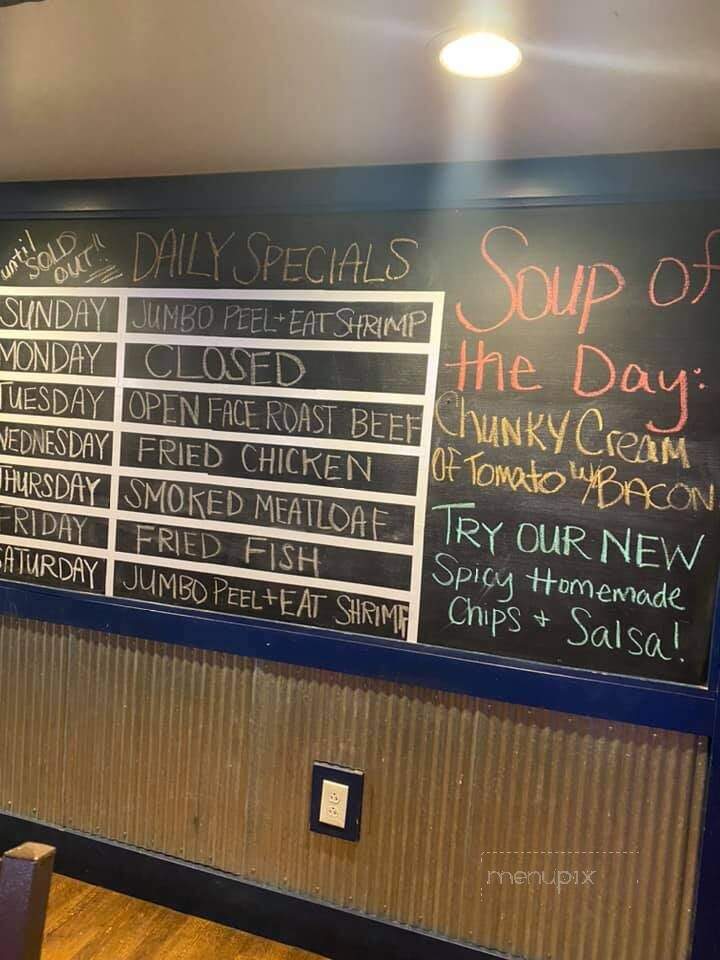 until SOLD OUT!!
DAILY SPECIALS
SUNDAY JUMBO PEEL+EAT SHRIMP
MONDAY CLOSED
TUESDAY OPEN FACE ROAST BEEF
WEDNESDAY FRIED CHICKEN
THURSDAY SMOKED MEATLOAF
FRIDAY FRIED FISH
SATURDAY JUMBO PEEL+EAT SHRIMP
Soup of
the Day:
Chunky Cream
OF Tomato w/ BACON
TRY OUR NEW
Spicy Homemade
Chips + Salsa!
menupix